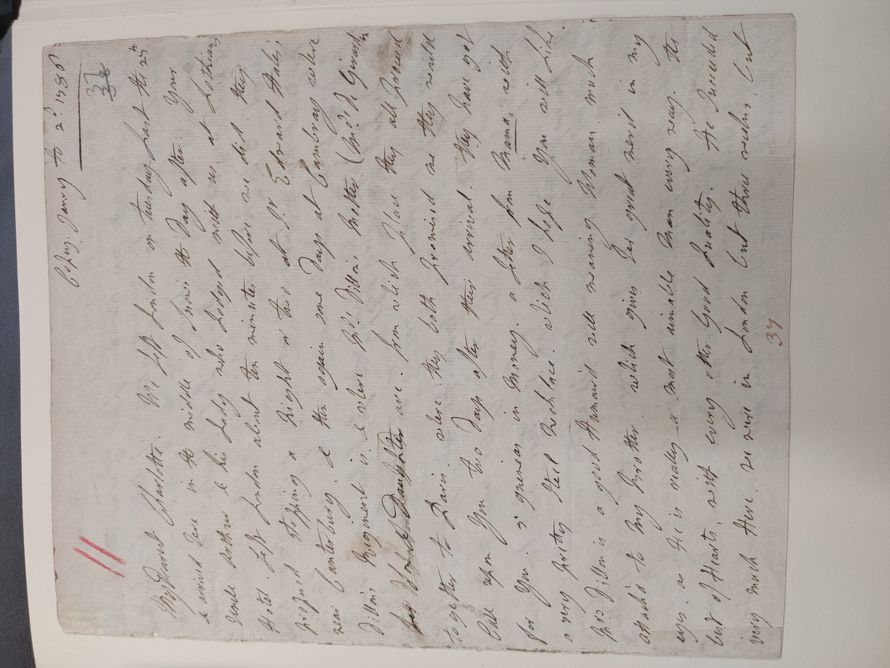 Janry ye 2d 1786
37
My Dearest Charlotte. We left London on tuesday last the 27th
& arrived here in the middle of snow the Day after. Your
Uncle Arthur & his Lady who Lodged with us at Lothian's
Hotel left London about ten minutes before we did. they
proposed stopping a Night or two at Sr Edward Hales,
near Canterbury. & then again some Days at Cambray where
Dillon's Regiment is & where Mrs Dillon's Mother (Md de Girardin
her Daughter are. from which place they all proceed
together to Paris. where they both promised me they would
Call upon You two Days after their arrival. they have got
for You. 5 guineas in Money. a letter from Mama, with
a very pretty Steel Necklace. which I hope You will like.
Mrs Dillon is a good Humoured well meaning Woman much
attached to my Brother. which gives her great merit in my
eyes. as He is really a most amiable Man every way. the
best of Hearts, with every other Good Quality. He succeeded
very much Here. we were in London but three weeks. but
37